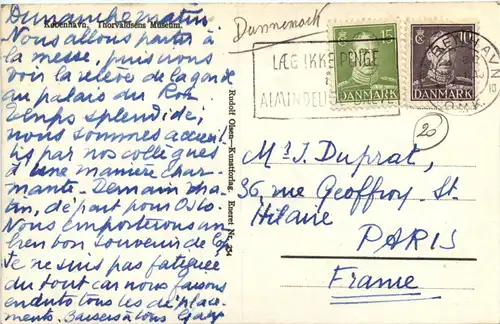 Dimanche matin
København, Thorvaldsens Museum.
Nous allons partir à
la messe, puis nous
voir la relève de la garde
au palais du Roi.
Temps splendide,
nous sommes accueil-
lis par nos collègues
d'une manière char-
mante. Demain ma-
tin, départ pour Oslo.
Nous emporterons un
bien bon souvenir de
Je ne suis pas fatiguée
du tout car nous faisons
en auto tous les déplace-
ments. Baisers à tous
Rudolf Olsen—Kunstforlag. Eneret Nr.
Dannemark
LÆG IKKE PENGE
I
ALMINDELIGE BREVE
15
DANMARK
10
DANMARK
20
Mr J. Duprat,
36, rue Geoffroy St.
Hilaire
PARIS
France